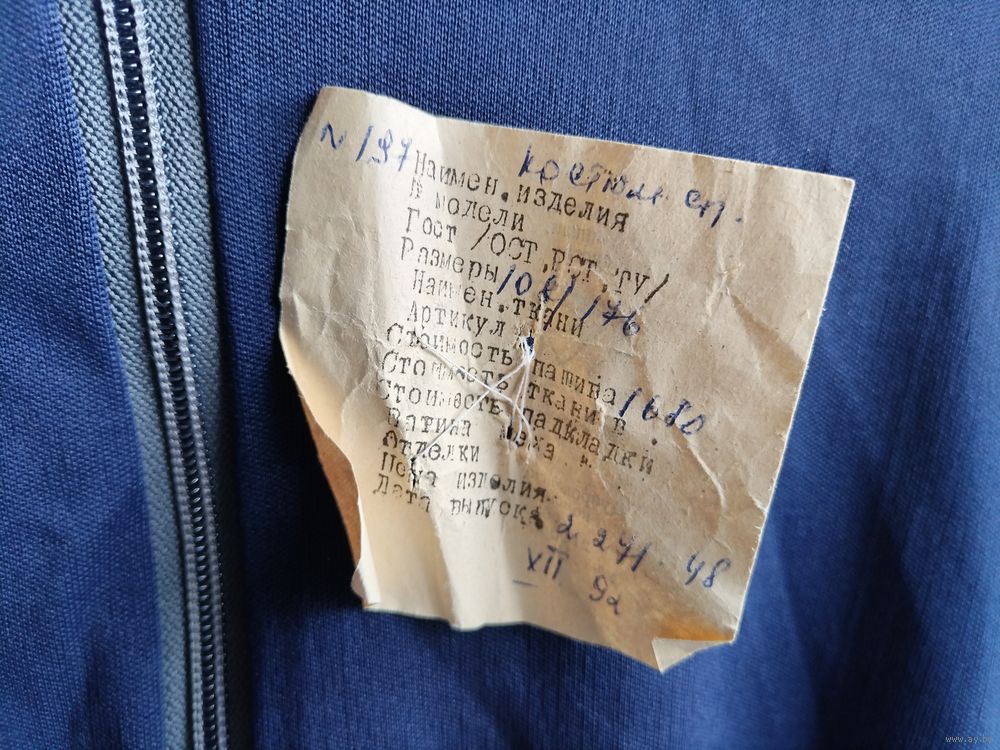 N 197 костюм сп.
Наимен.изделия
N модели
Гост /ОСТ,РСТ,ТУ/
Размеры 104/176
Наимен.ткани
Артикул
Стоимость пашива 1680
Стоимость ткани в
Стоимость падкладки
Ватина меха
Отделки
Цена изделия
Дата выпуска 2 271.48
XII 92
www.ay.by